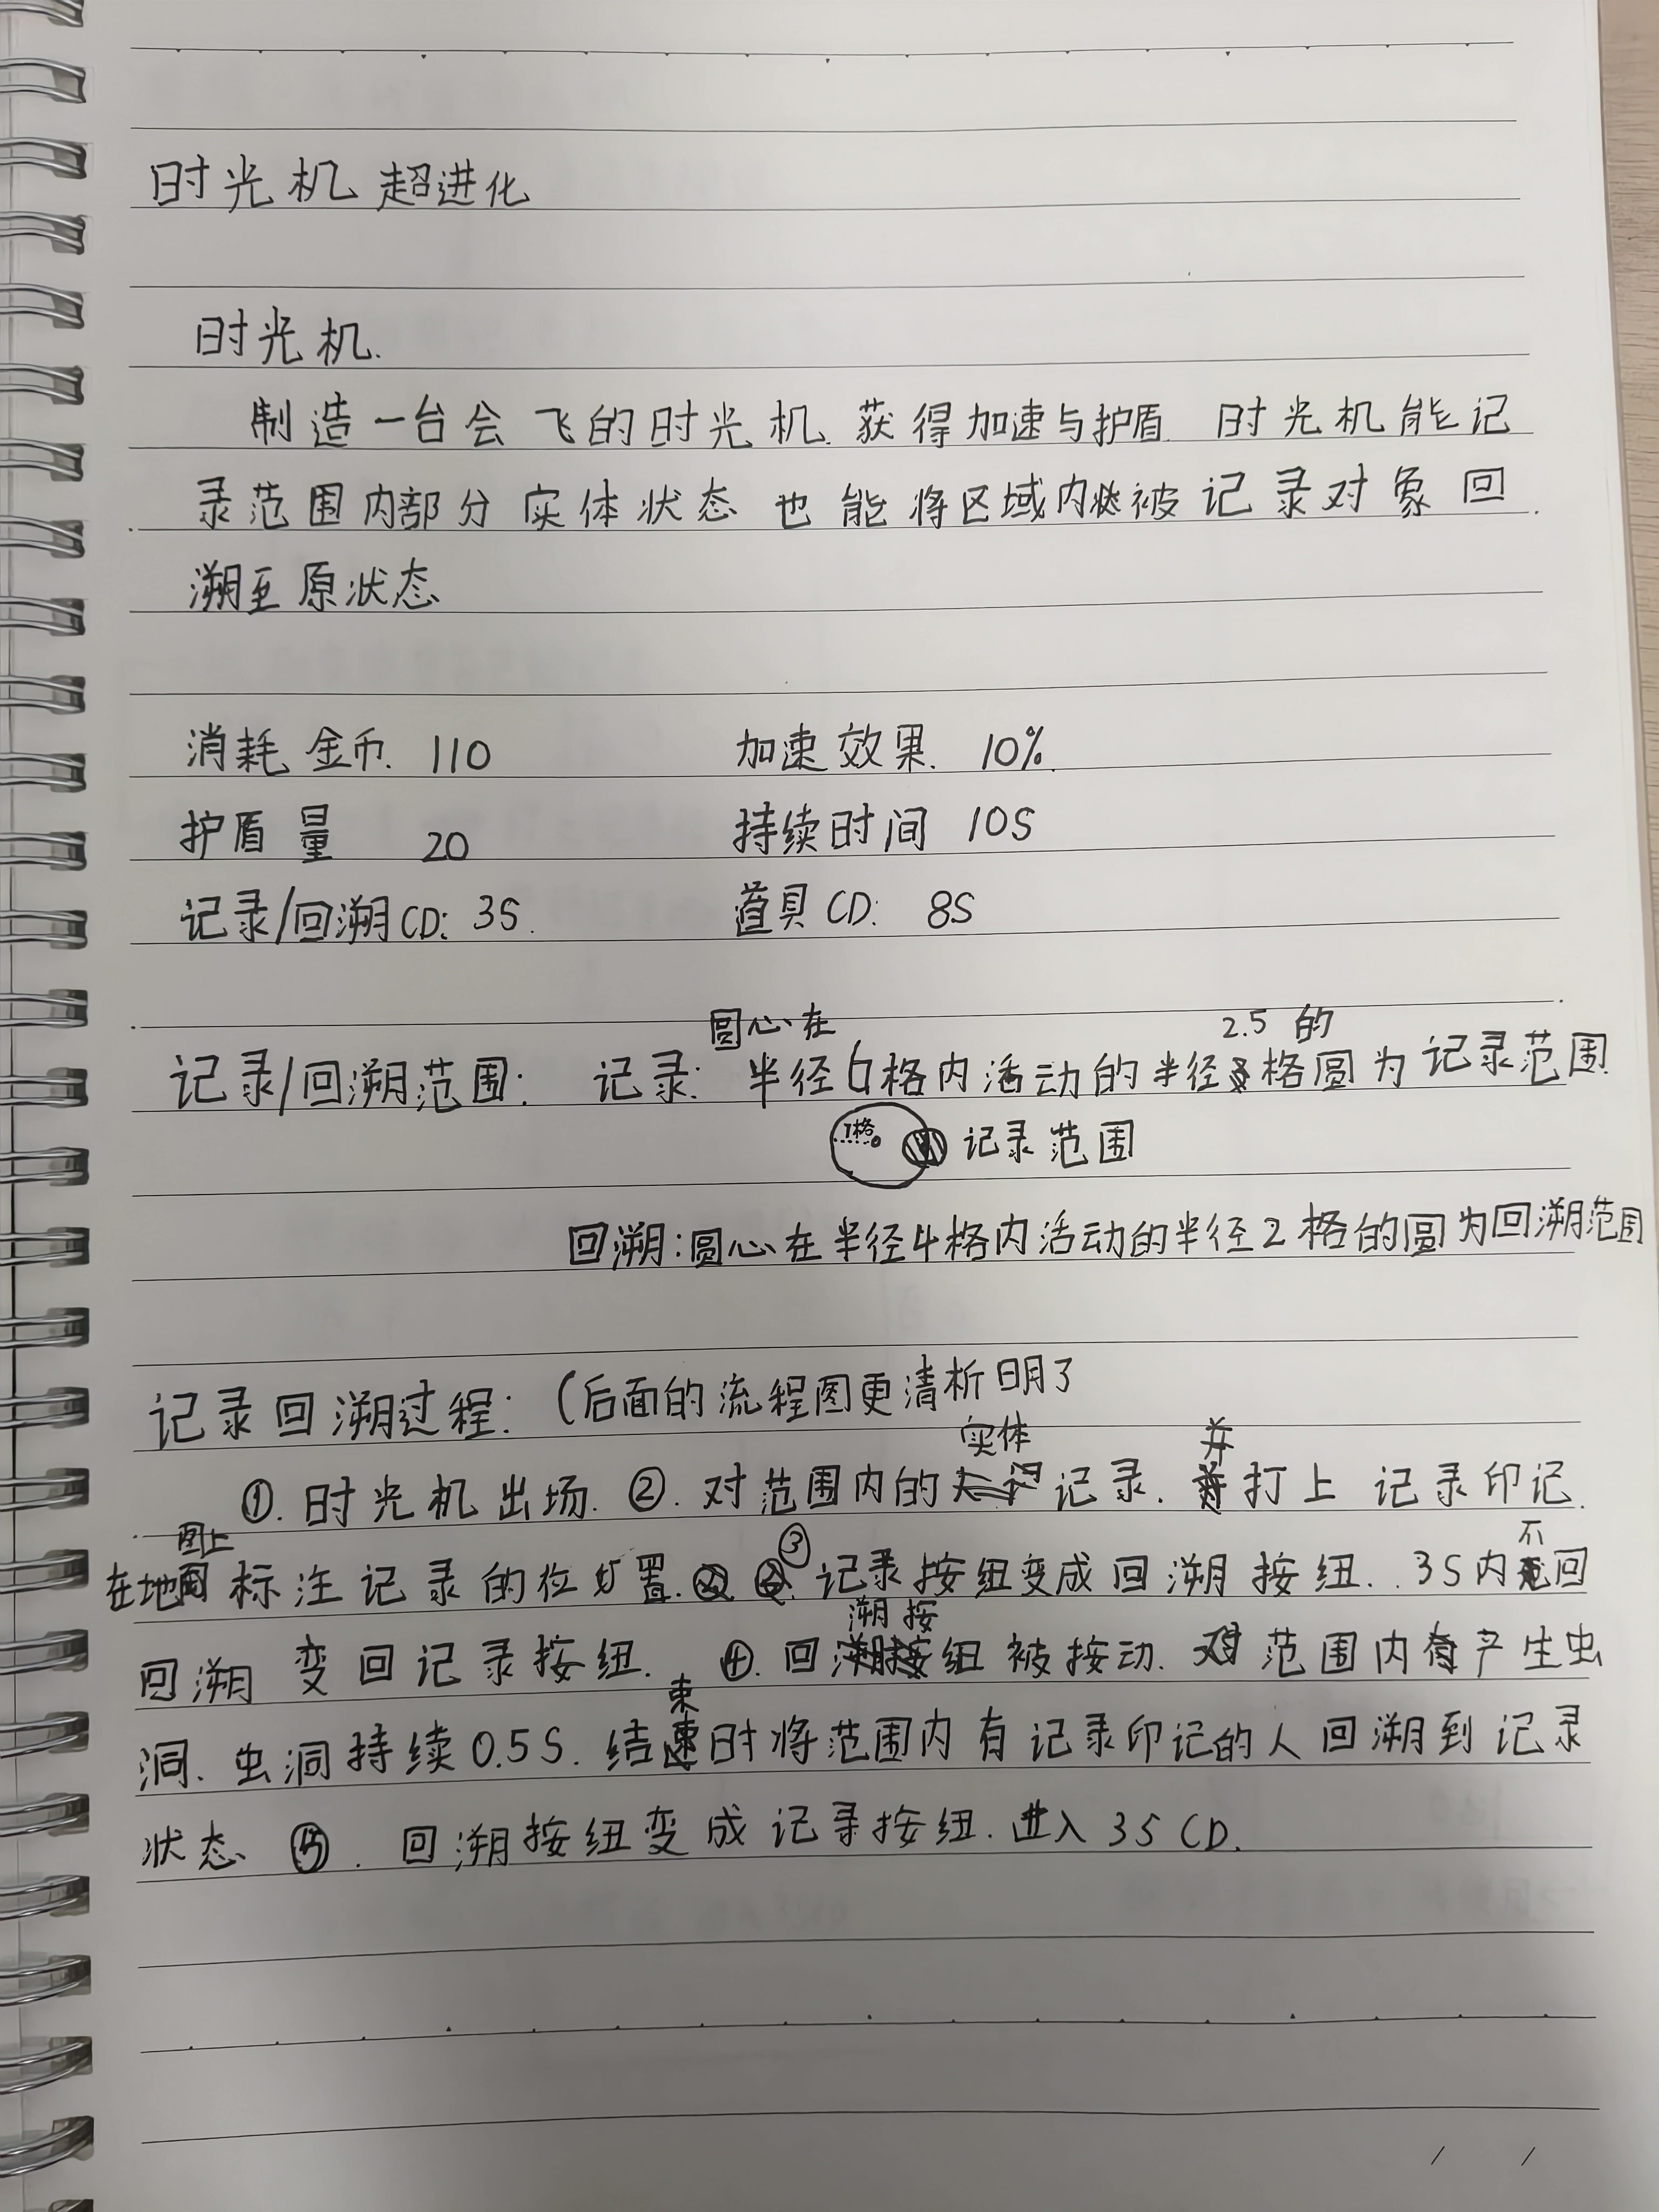 时光机超进化
时光机.
制造一台会飞的时光机.获得加速与护盾.时光机能记
录范围内部分实体状态 也能将区域内被记录对象回
溯至原状态
消耗金币. 110 加速效果. 10%.
护盾量 20 持续时间 10S
记录/回溯CD: 3S. 道具CD: 8S
圆心在 2.5 的
记录/回溯范围: 记录: 半径6格内活动的半径格圆为记录范围.
格 记录范围
回溯:圆心在半径4格内活动的半径2格的圆为回溯范围
记录回溯过程: (后面的流程图更清析明了
实体 并
①.时光机出场. ②.对范围内的记录.打上 记录印记.
图上 ③ 不
在地标注记录的位置.记录按纽变成回溯按纽..3S内回
溯按
回溯 变回记录按纽. ④.回纽被按动.范围内产生虫
束
洞.虫洞持续0.5S.结时将范围内有记录印记的人回溯到记录
状态 ⑤.回溯按纽变成记录按纽.进入3S CD.